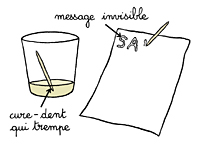 message invisible
SA
cure-dent
qui trempe